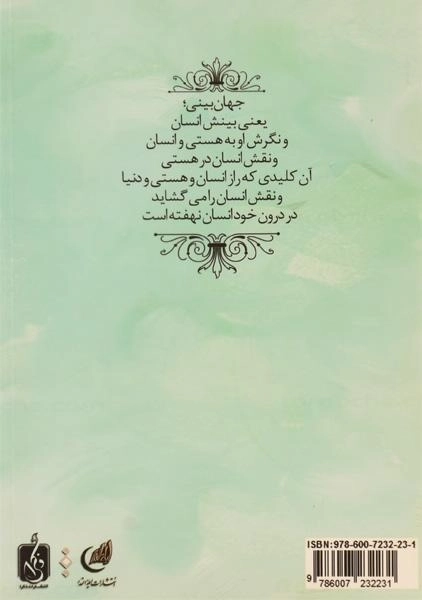 جهان‌بینی؛
یعنی بینش انسان
و نگرش او به هستی و انسان
و نقش انسان در هستی
آن کلیدی که راز انسان و هستی و دنیا
و نقش انسان را می گشاید
در درون خود انسان نهفته است
ISBN:978-600-7232-23-1
9 786007 232231